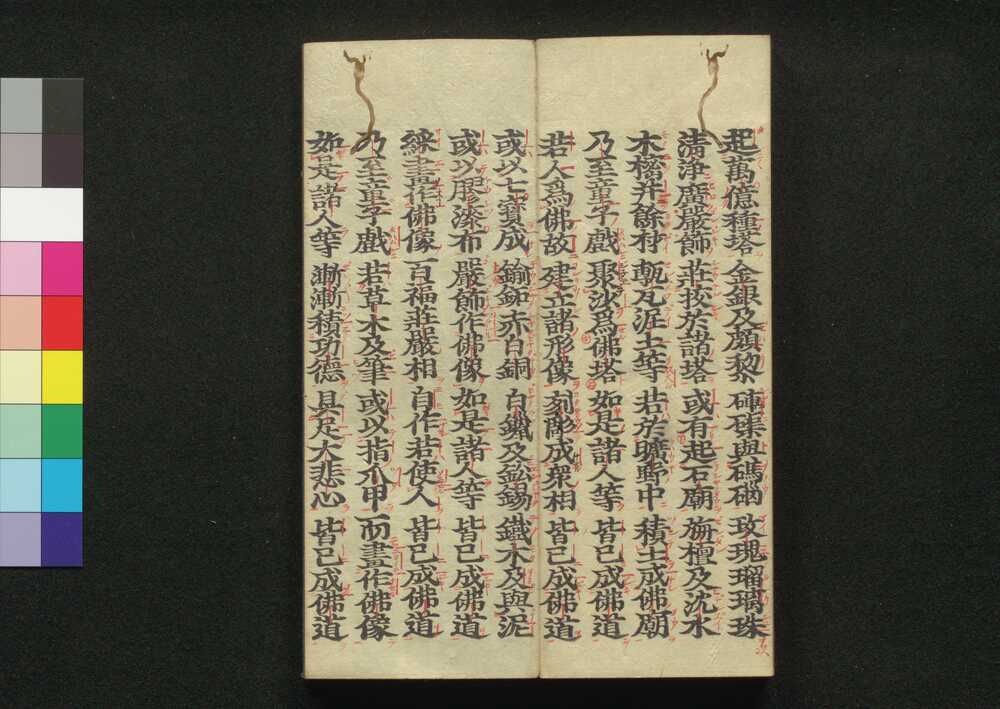 起萬億種塔 金銀及頗黎 硨磲與碼碯 玫瑰瑠璃珠
清淨廣嚴飾 莊挍於諸塔 或有起石廟 旃檀及沈水
木樒并餘材 甎瓦泥土等 若於曠野中 積土成佛廟
乃至童子戲 聚沙爲佛塔 如是諸人等 皆已成佛道
若人爲佛故 建立諸形像 刻彫成衆相 皆已成佛道
或以七寶成 鍮鉐赤白銅 白鑞及鉛錫 鐵木及與泥
或以膠漆布 嚴飾作佛像 如是諸人等 皆已成佛道
綵畫作佛像 百福莊嚴相 自作若使人 皆已成佛道
乃至童子戲 若草木及筆 或以指爪甲 而畫作佛像
如是諸人等 漸漸積功德 具足大悲心 皆已成佛道